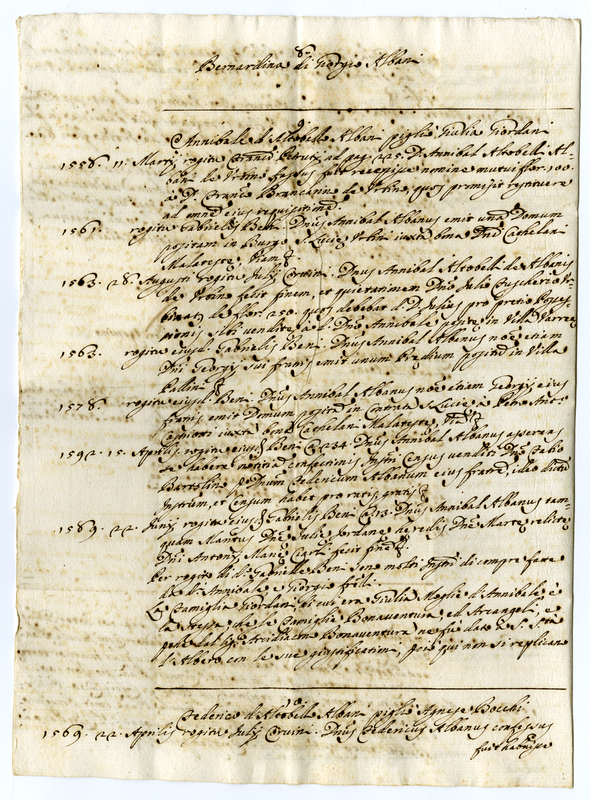 8
Bernardina di Giorgio Albani
9
Annibale d'Altobello Albani piglio Giulia Giordani
1558. 11. Martij rogitu Franci ad pag. 225. D. Annibal Altobelli Al-
de Urbino fassus fuit recepisse nomine mutui flor. 100
a D. Franco Brancarino de Urbino, quos promisit restituere
ad omnem eius requisitionem.
1561. rogitu Gabrielis Beni. Dnus Annibal Albanus emit unam Domum
positam in Burgo S. Lucie Urbini iuxta bona Cathelani
Malareste, Viam
1563. 28. Augusti rogitu Julij Corvini. Dnus Annibal Altobelli de Albanis
de Urbino fecit finem, et quietationem Dno Julio
de flor. 250. quos debebat d. D. Julius pro pretio
sibi vendite a d. Dno Annibale posite in Villa
1563. rogitu eiusd. Gabrielis Beni. Dnus Annibal Albanus noe etiam
Dni Georgij sui fratris emit unum predium positum in Villa
1578. rogitu eiusd. Beni. Dnus Annibal Albanus noe etiam Georgij eius
fratris emit Domum positam in Contrata S. Lucie a Petro Ant.
iuxta bona Cathelani Malareste, Viam
1592. 15. Aprilis rogitu eiusd. Beni C. 234. Dnus Annibal Albanus asserens
se habere notitia confectionis Instri Census venditi Dno Fabio
Bartolino p. Dnum Federicum Albanum eius fratrem, ideo dictum
Instrum, et Censum habet pro ratis, gratis
1589. 22. Junij rogitu eiusd. Gabrielis Beni C. 13. Dnus Annibal Albanus tam-
quam Maritus Dne Julie Jordane de relis Dne Marte relicte
Dni Antonij Marie fecit finem
Per rogito di d. Gabrielle Beni sono molti Instri di compre fatte
da d. Annibale, e Giorgio frlli.
La Famiglia Giordani, di cui era Giulia Moglie d'Annibale è
la stessa, che le Famiglie Bonaventura, ed Arcangeli, e
dal Sig. Bonaventura ne fu dato à S. Sta
l'Albero con le sue giustificationi, perciò qui non si replicano
10
Federico d'Altobello Albani piglio Agnese Bocchi
1569. 22. Aprilis rogitu Julij Corvini. Dnus Federicus Albanus confessus
fuit habuisse